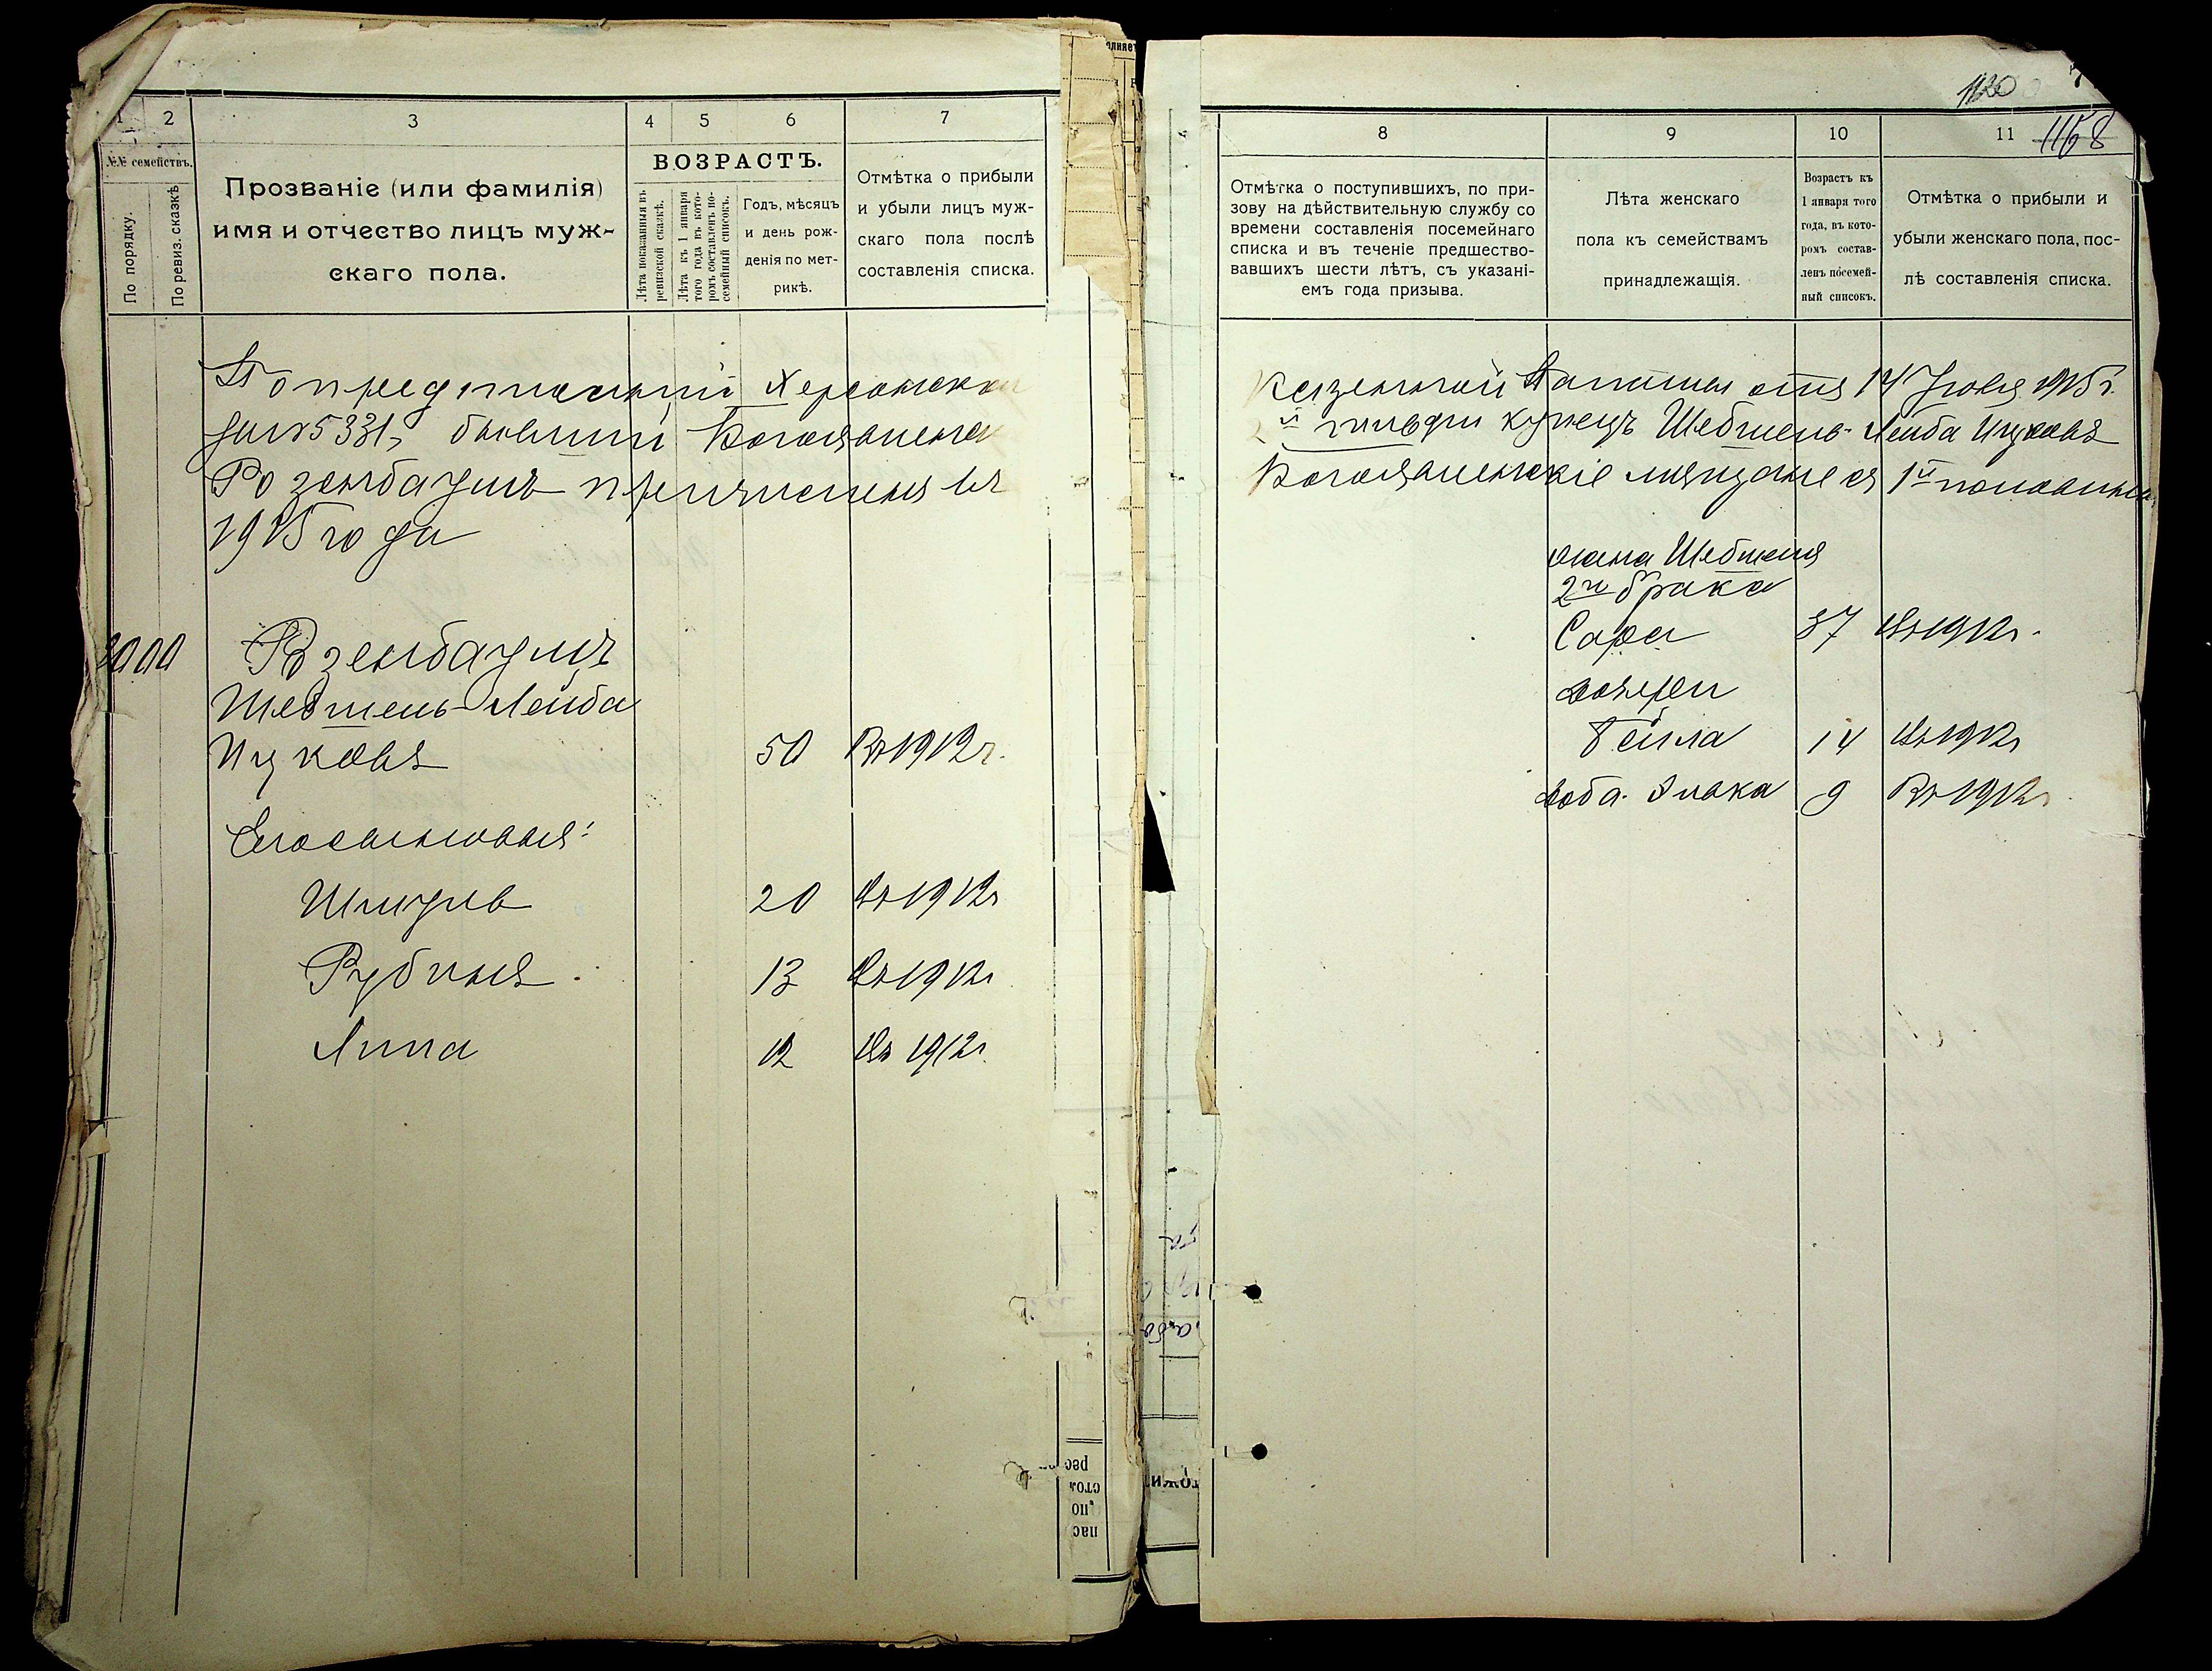 1
2
3
4
5
6
7
№№ семействъ.
По порядку.
По ревиз. сказкѣ
Прозваніе (или фамилія)
имя и отчество лицъ муж-
скаго пола.
ВОЗРАСТЪ.
Лѣта показанныя въ
ревизской сказкѣ.
Лѣта къ 1 января
того года въ кото-
ромъ составленъ по-
семейный списокъ.
Годъ, мѣсяцъ
и день рож-
денія по мет-
рикѣ.
Отмѣтка о прибыли
и убыли лицъ муж-
скаго пола послѣ
составленія списка.
По предписанію Херсонской
за № 5331, бывшій Богоявленск
Розенбаумъ причисленъ въ
1915 года
Розенбаумъ
Шевтель-Лейба
Ицковъ 50 Въ 1912 г.
Его сыновья:
Шмуль 20 Въ 1912 г
Рубинъ 13 Въ 1912 г
Липа 12 Въ 1912 г.
1120
1158
8
9
10
11
Отмѣтка о поступившихъ, по при-
зову на дѣйствительную службу со
времени составленія посемейнаго
списка и въ теченіе предшество-
вавшихъ шести лѣтъ, съ указані-
емъ года призыва.
Лѣта женскаго
пола къ семействамъ
принадлежащія.
Возрастъ къ
1 января того
года, въ кото-
ромъ состав-
ленъ посемей-
ный списокъ.
Отмѣтка о прибыли и
убыли женскаго пола, пос-
лѣ составленія списка.
Казенной Палаты отъ 14 Іюля 1915 г.
2й гильдіи купецъ Шевтель-Лейба Ицковъ
Богоявленскіе мѣщане съ 1й половины
жена Шевтеля
2го брака
Сара 37 Въ 1912 г.
дочери
Бейла 14 Въ 1912 г
Доба-Злака 9 Въ 1912 г